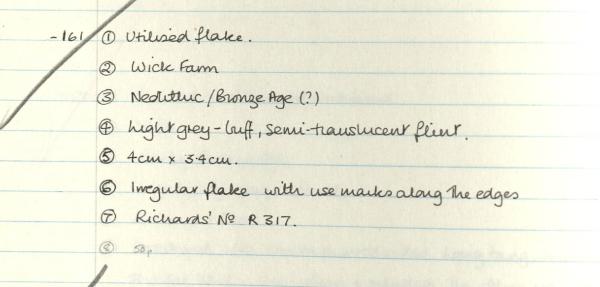 -161 ① Utilised flake.
② Wick Farm
③ Neolithic/Bronze Age (?)
④ Light grey-buff, semi-translucent flint.
⑤ 4cm x 3.4cm.
⑥ Irregular flake with use marks along the edges
⑦ Richards' No R 317.
⑧ 50p